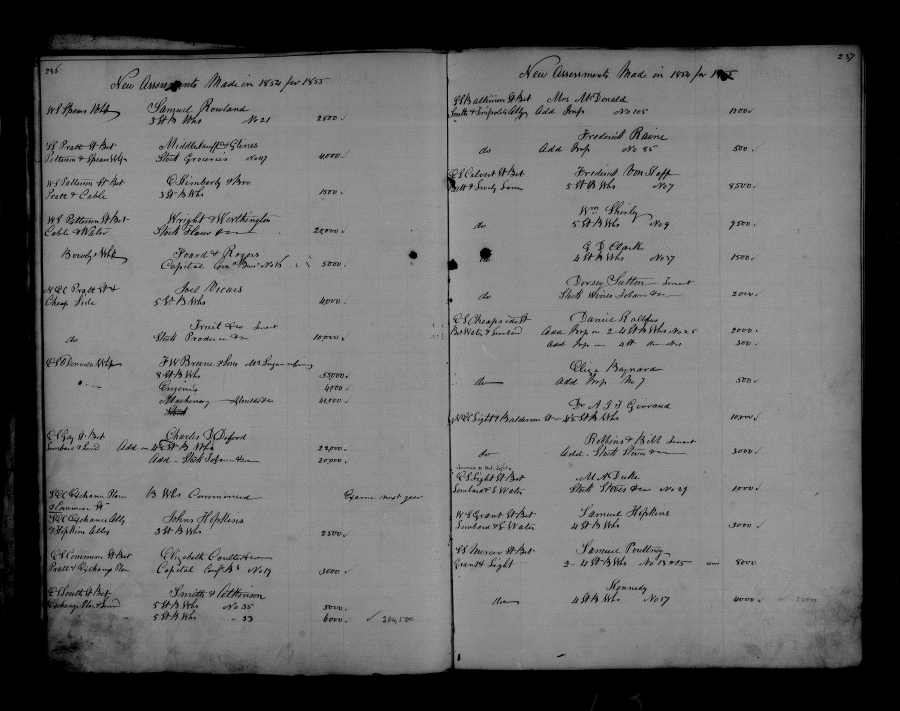 236
New Assessments Made in 1854 for 1855
W S Spears Whf Samuel Rowland
3 St B Whs No 21 2500
S S Pratt St Bet Middlekauff & Glines
Patterson & Spears Whfs Stock Groceries No 47 4,000
W S Patterson St Bet C Kimberly & Bro
Pratt & Cable 3 St B Whs 1500
W S Patterson St Bet Wright & Worthington
Cable & Water Stock Flour &c 20,000
Bowlys Whf Foard & Rogers
Capital No 16 5000
N E C Pratt St & Joel Vicars
Cheap Side 5 St B Whs 4000
Fruit &c Tenant
do Stock Produce &c 10,000
E S O'Donnells Whf F W Brune & Sons
8 St B Whs 55000
Engines 4000
Machinery Moulds &c 41,000
Stock
E S Gay St Bet Charles D Deford
Lombard & Add 4 St B Whs 22,000
Add Stock Tobacco &c 20,000
S E C Exchange Place B Whs Commenced Exam next year
& Commerce St
S E C Exchange Ally Johns Hopkins
& Hopkins Alley 3 St B Whs 2500
E S Commerce St Bet Elizabeth Coulter
Pratt & Exchange Place Capital No 19 3000
E S South St Bet Smith & Atkinson
Exchange Place & 5 St B Whs No 35 5000
5 St B Whs " 33 6000 204,500
237
New Assessments Made in 1854 for 1855
S S Baltimore St Bet Mrs McDonald
South & Tripoletts Ally Add Imp No 105 1200
Frederick Raine
do Add Imp No 85 500
E S Calvert St Bet Frederick Von
Balt & Lovely Lane 5 St B Whs No 7 8500
Wm Shirly
do 5 St B Whs No 9 9500
G D Clark
do 4 St B Whs No 37 1500
Dorsey Sutton Tenant
do Stock Wines Tobacco &c 2000
E S Cheapside St Daniel
Bet Water & Lombard Add Imp on 2-4 St B Whs No 25 2000
Add Imp 4 St 300
Eliza Baynard
do Add Imp No 7 500
Dr. A J F
N E C Light & Balderson St 4 St B Whs 10000
Robbins & Bibb Tenant
do Add Stock Stoves &c 3000
E S Light St Bet M A Duke
Lombard & S Water Stock Stoves &c No 29 1000
W S Grant St Bet Samuel Hopkins
Lombard & S Water 4 St B Whs 3000
S S Mercer St Bet Samuel Poultney
Grant & Light 2-4 St B Whs No 13 & 15 8000
Kennedy
do 4 St B Whs No 17 4000